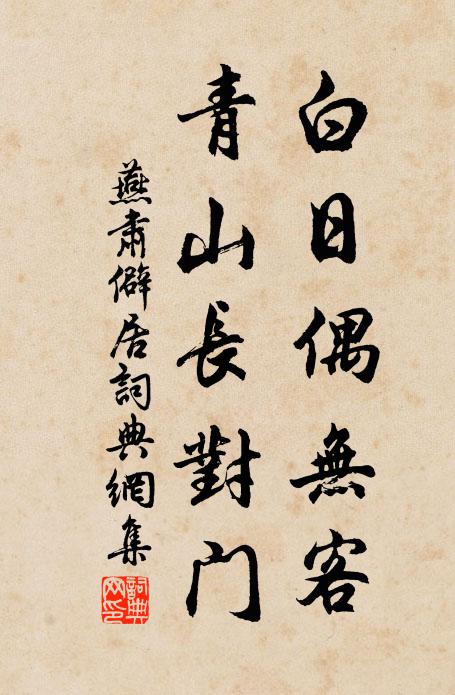 白日偶無客
青山長對门
燕肅僻居詞典網集
詞典
网印